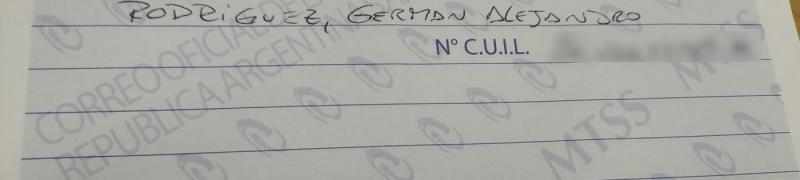 RODRIGUEZ, GERMAN ALEJANDRO
N° C.U.I.L.
CORREO OFICIAL DE
REPUBLICA ARGENTINA
MTSS
MTSS